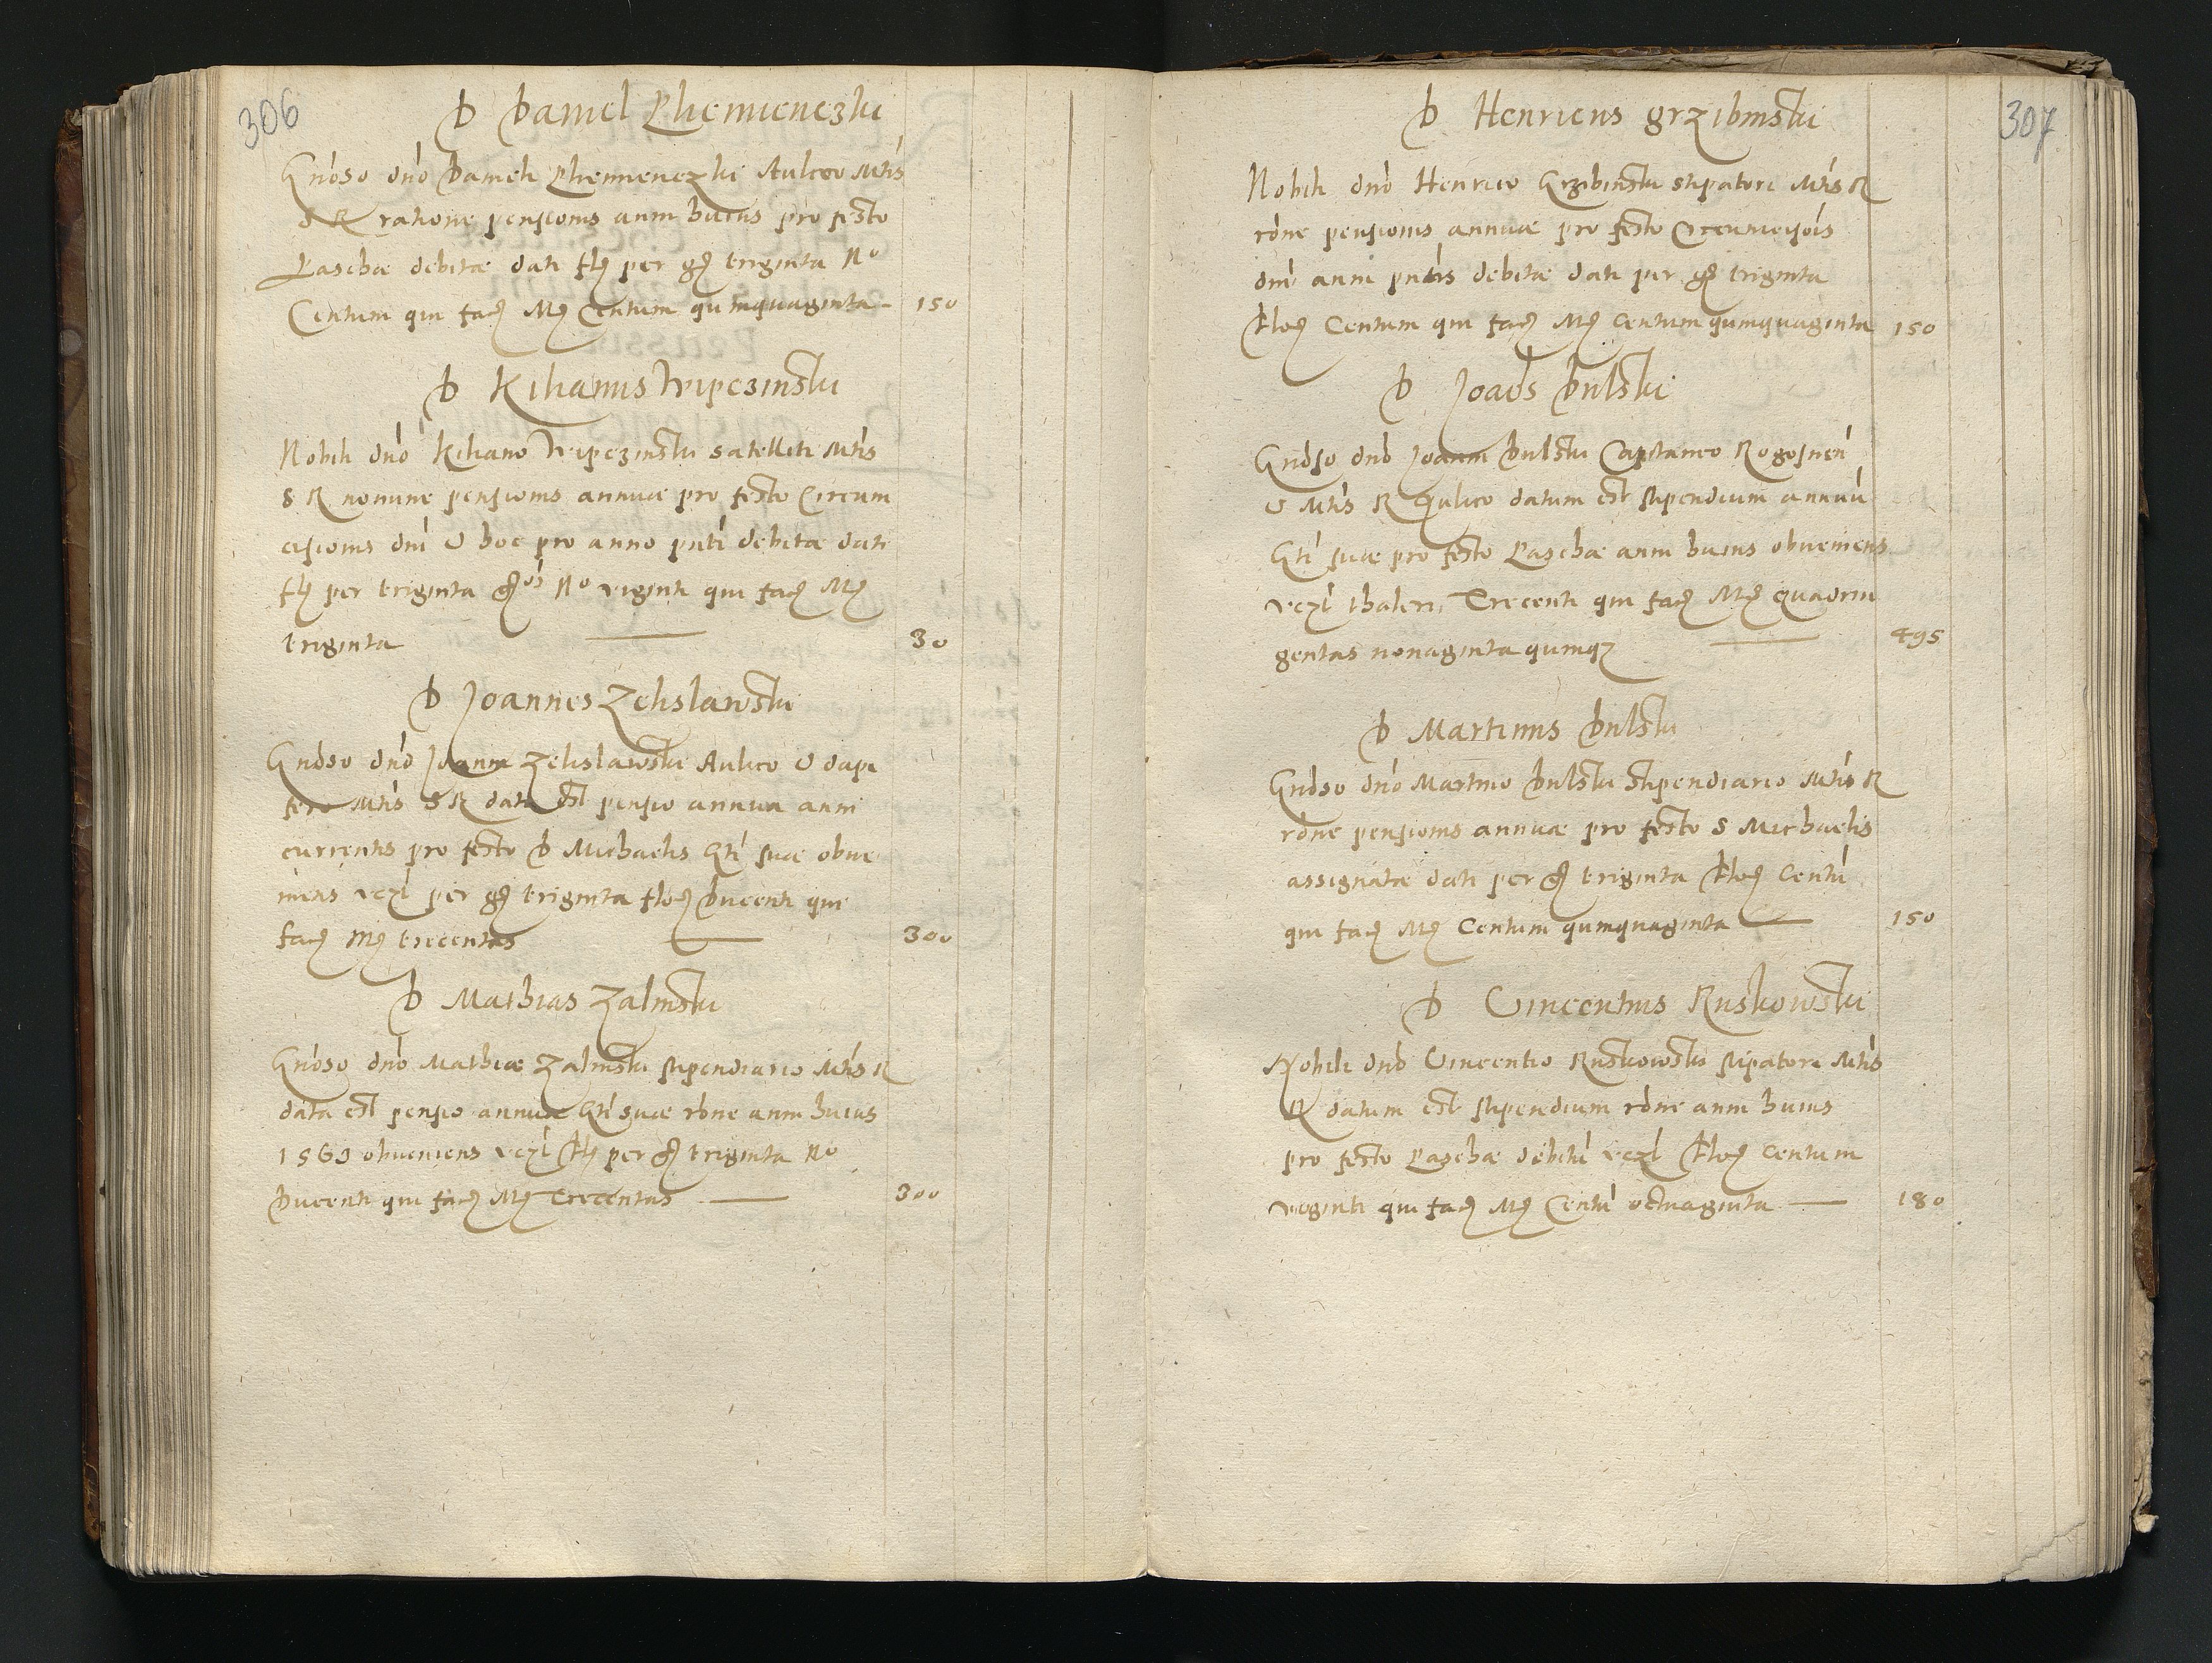 306
D Daniel Plemieneczki
Gnoso dno Danieli Plemieneczki Aulico Mtis
S R ratione pensionis anni huius pro festo
Paschae debitae dati fl per gr triginta No
Centum qui faciunt Mr Centum quinquaginta - 150
D Kilianus Wipczinski
Nobili dno Kiliano Wipczinski satelliti Mtis
S R nomine pensionis annuae pro festo Circum
cisionis dni et hoc pro anno pnti debitae dati
fl per triginta gros No viginti qui faciunt Mr
triginta — 30
D Joannes Zelislawski
Gnoso dno Joanni Zelislawski Aulico et dapi
fero Mtis S R data est pensio annua anni
currentis pro festo D Michaelis Gti suae obve
niens vczl per gr triginta flor Ducenti qui
faciunt Mr trecentas — 300
D Mathias Zalinski
Gnoso dno Mathiae Zalinski stipendiario Mtis R
data est pensio annua Gti suae rone anni huius
1563 obveniens vczl fl per gr triginta No
Ducenti qui faciunt Mr Trecentas — 300
307
D Henricus grzibinski
Nobili dno Henrico Grzibinski stipatori Mtis R
rone pensionis annuae pro festo Circumcisois
dni anni pntis debitae dati per gr triginta
Flor Centum qui faciunt Mr Centum quinquaginta 150
D Joaes Dulski
Gnoso dno Joanni Dulski Capitaneo Rogosnen
et Mtis R Aulico datum est stipendium annuu
Gti suae pro festo Paschae anni huius obveniens
vczl thaleri Trecenti qui faciunt Mr quadrin
gentas nonaginta quinqz — 495
D Martinus Dulski
Gnoso dno Martino Dulski Stipendiario Mtis R
rone pensionis annuae pro festo S Michaelis
assignatae dati per gr triginta Flor Centu
qui faciunt Mr Centum quinquaginta — 150
D Vincentius Ruskowski
Nobili dno Vincentio Ruskowski stipatori Mtis
R datum est stipendium rone anni huius
pro festo Paschae debitu vczl Flor Centum
viginti qui faciunt Mr Centu octuaginta — 180